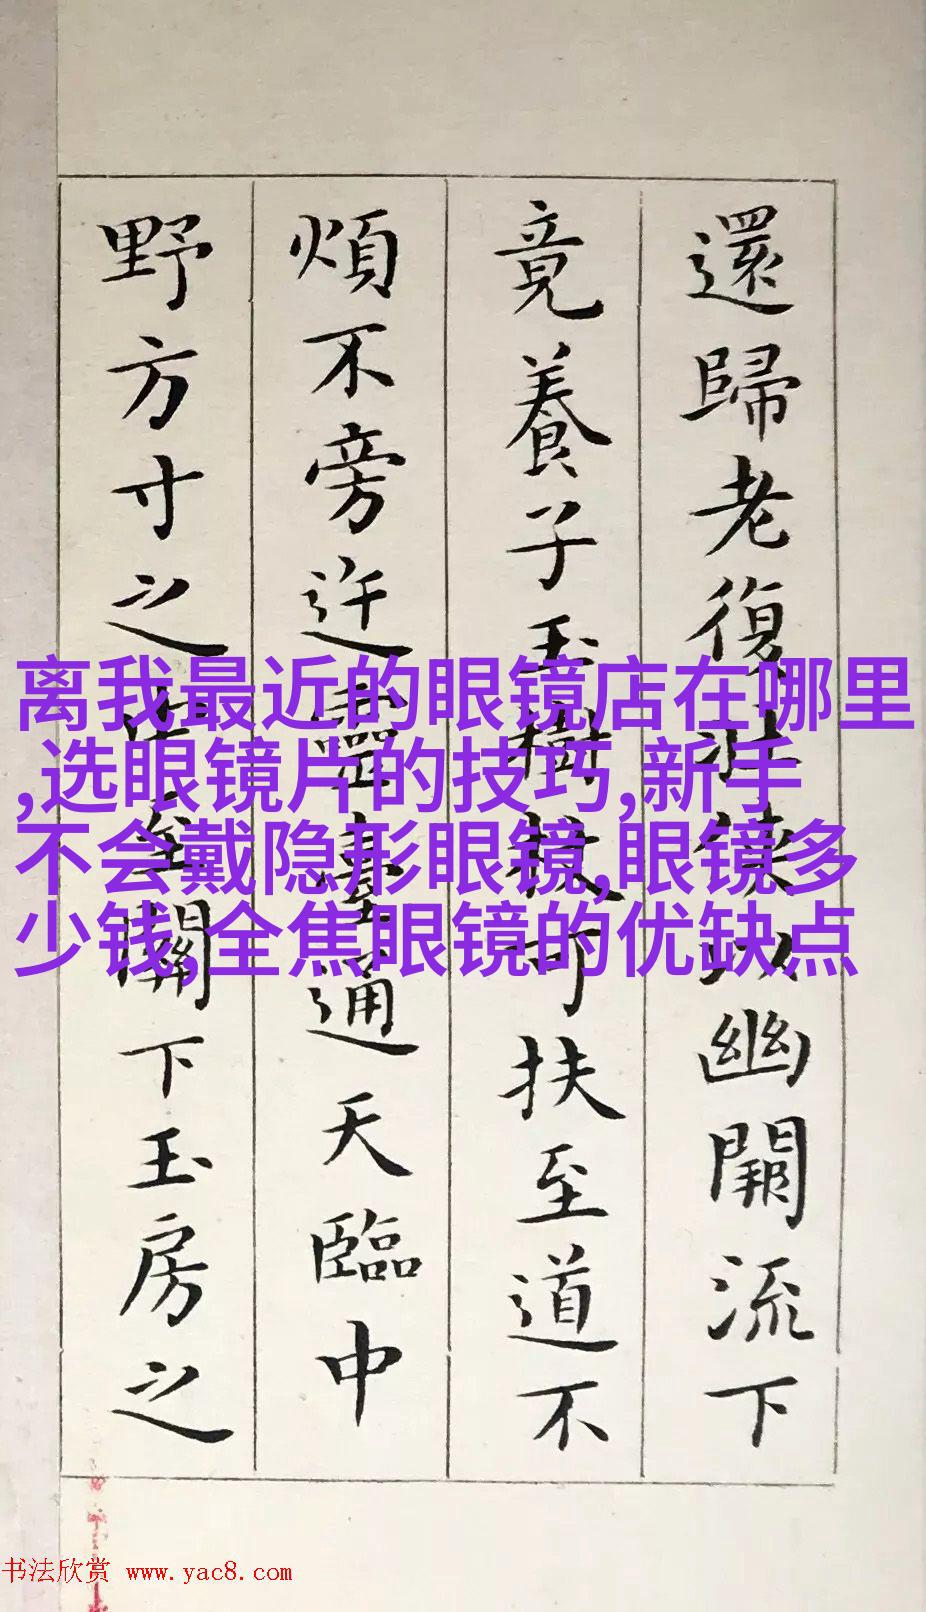 還歸老復壯俠以幽闕流下
竟養子玉樹杖可扶至道不
煩不旁迕靈臺通天臨中
野方寸之中至關下玉房之
离我最近的眼镜店在哪里
,选眼镜片的技巧,新手
不会戴隐形眼镜,眼镜多
少钱,全焦眼镜的优缺点
书法欣赏 www.yac8.com